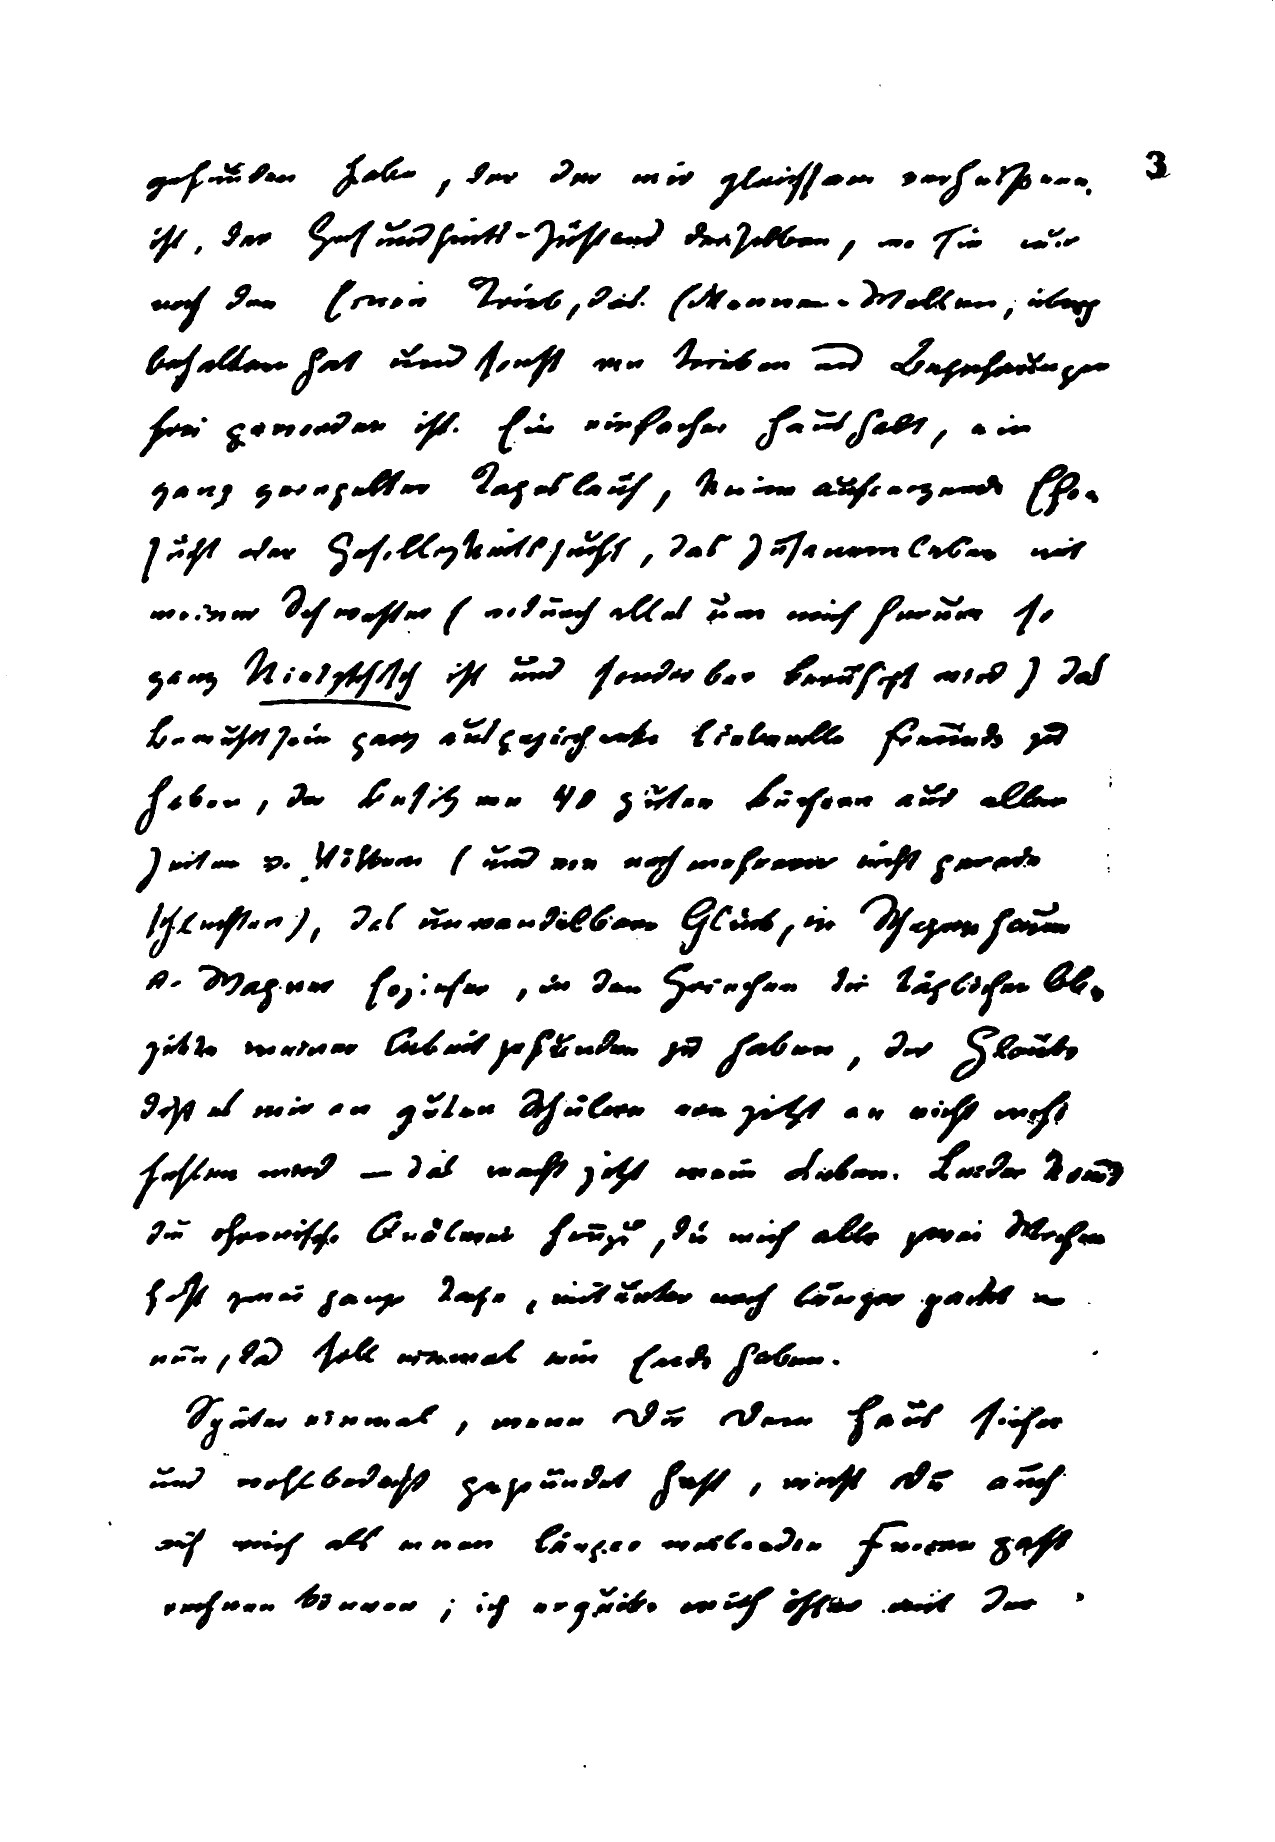 gefunden habe, der der mir gleichsam verheißene 3
ist, der Gesundheits-Zustand derselben, wo sie nur
noch den Einen Trieb, das Erkennen-Wollen, übrig
behalten hat und sonst von Trieben und Begehrungen
frei geworden ist. Ein einfacher Haushalt, ein
ganz geregelter Tageslauf, keine aufreizende Ehr-
sucht oder Geselligkeitssucht, das Zusammenleben mit
meiner Schwester (wodurch alles um mich herum so
ganz Nietzschisch ist und sonderbar beruhigt wird) das
Bewußtsein ganz ausgezeichnete liebevolle Freunde zu
haben, der Besitz von 40 guten Büchern aus allen
Zeiten u. Völkern (und von noch mehreren nicht gerade
schlechten), das unwandelbare Glück, in Schopenhauer
u. Wagner Erzieher, in den Griechen die täglichen Ob-
jekte meiner Arbeit gefunden zu haben, der Glaube
daß es mir an guten Schülern von jetzt an nicht mehr
fehlen wird — das macht jetzt mein Leben. Leider kommt
die chronische Quälerei hinzu, die mich alle zwei Wochen
fast zwei ganze Tage, mitunter noch länger packt —
nun, das soll einmal ein Ende haben.
Später einmal, wenn Du Dein Haus sicher
und wohlbedacht gegründet hast, wirst Du auch
auf mich als einen länger weilenden Feriengast
rechnen können; ich erquicke mich öfter mit der